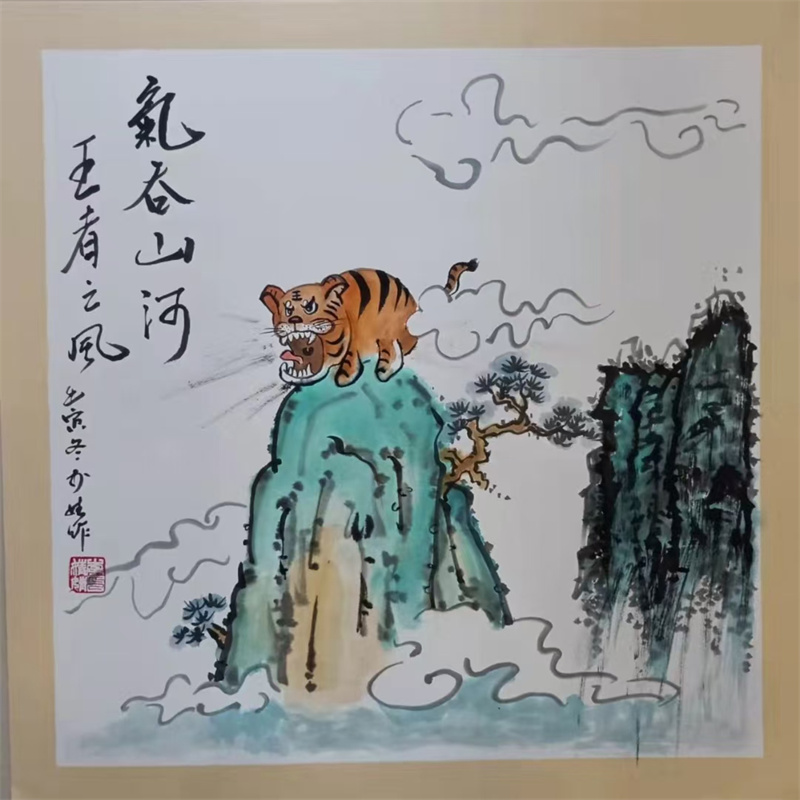 氣吞山河
王者之風
壬寅冬
作
王